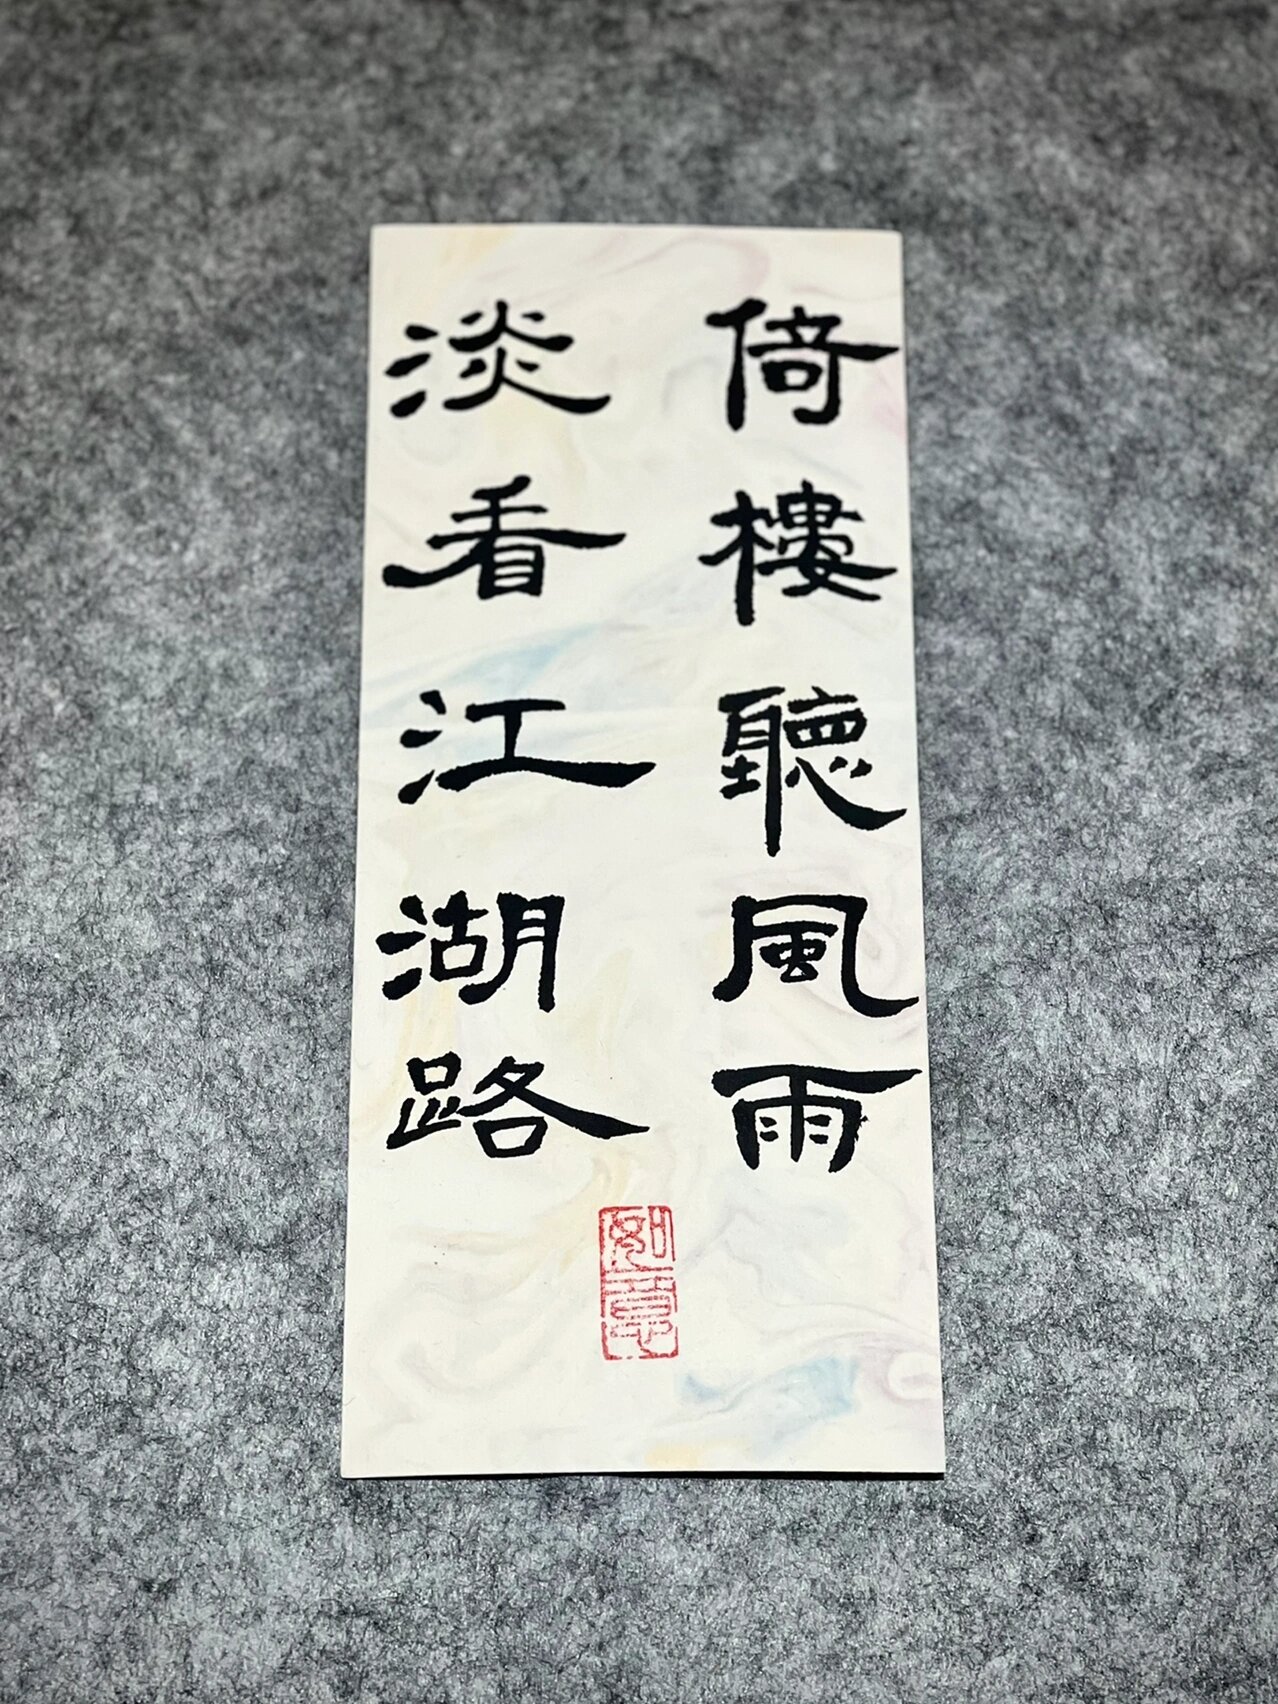 倚樓聽風雨
淡看江湖路
如意